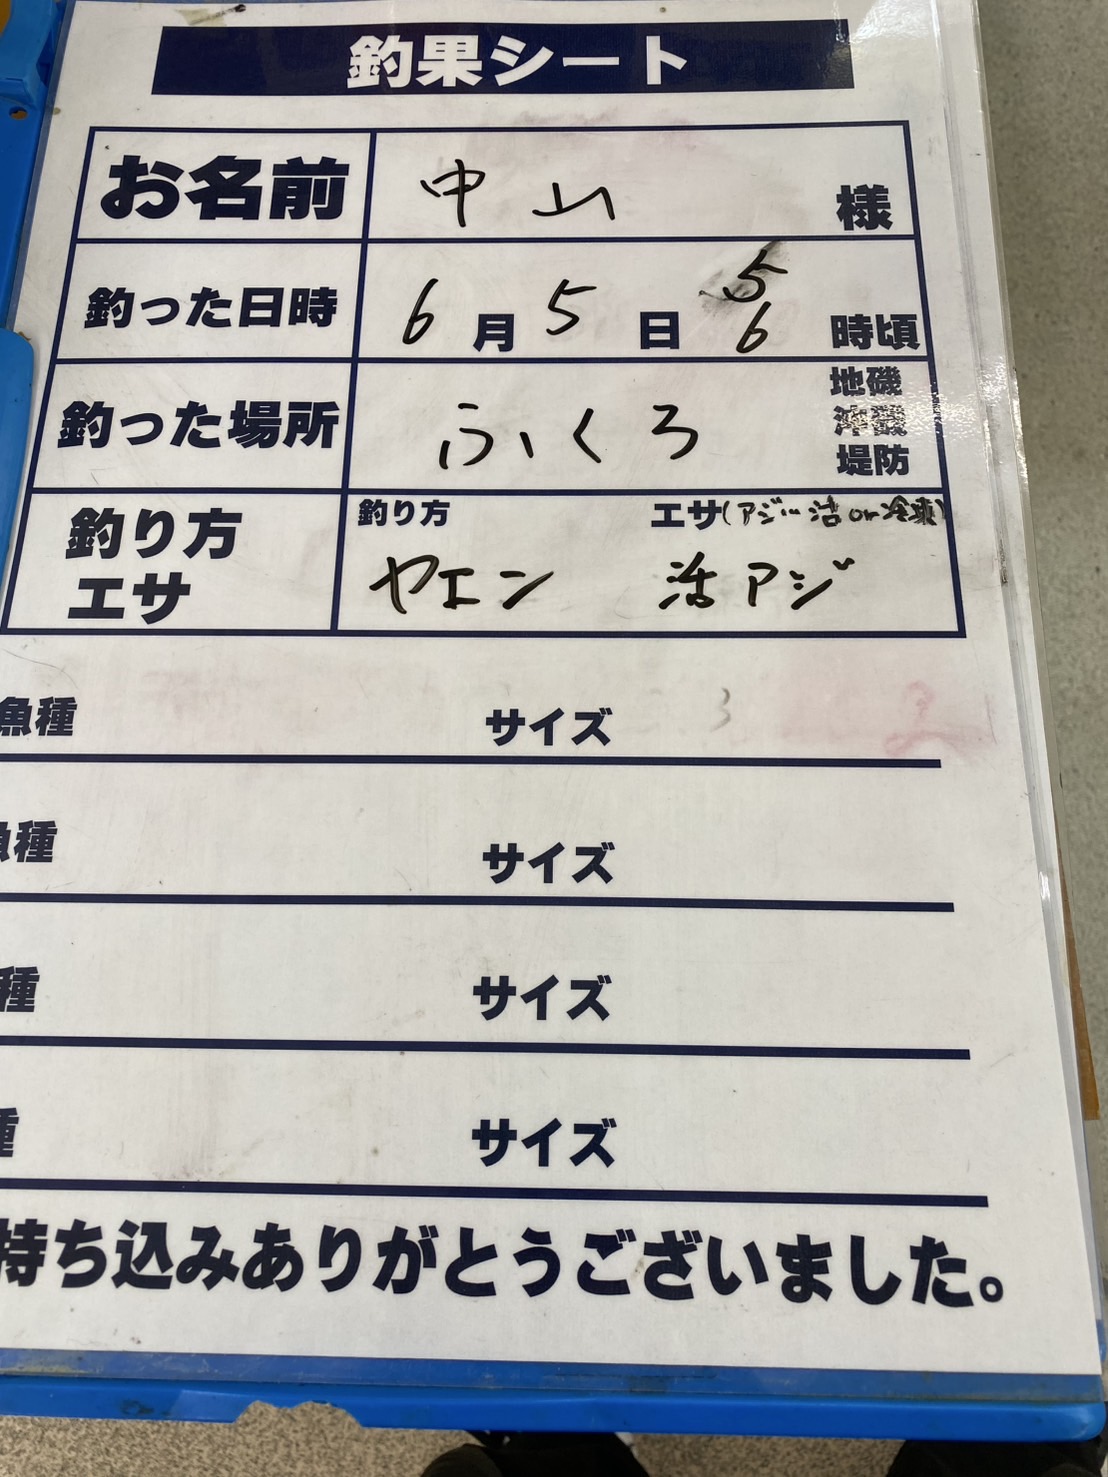 釣果シート
お名前 中山 様
釣った日時 6月5日 5 6 時頃
釣った場所 ふくろ 地磯 沖磯 堤防
釣り方 エサ(アジ…活or冷凍)
釣り方
エサ
ヤエン 活アジ
魚種 サイズ 3
魚種 サイズ
種 サイズ
種 サイズ
持ち込みありがとうございました。